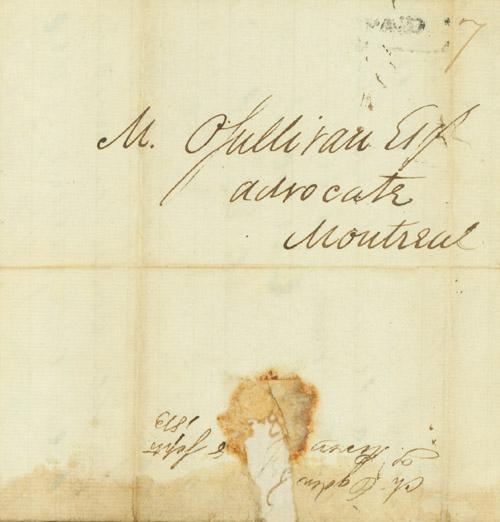 PAID
7
M. O'Sullivan Esqr
advocate
Montreal
8 Septr
1813